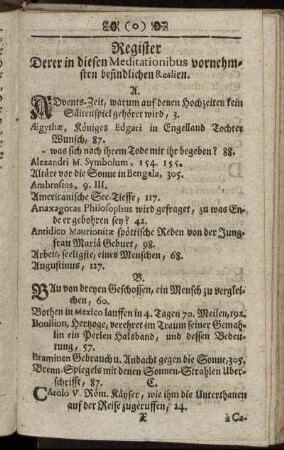 (0)
Register
Derer in diesen Meditationibus vornehm-
sten befindlichen Realien.
A.
Advents-Zeit, warum auf denen Hochzeiten kein
Säitenspiel gehöret wird, 3.
Ægythæ, Königes Edgari in Engelland Tochter
Wunsch, 87.
- was sich nach ihrem Tode mit ihr begeben? 88.
Alexandri M. Symbolum, 154. 155.
Altäre vor die Sonne in Bengala, 305.
Ambrosius, 9. 111.
Americanische See-Tieffe, 117.
Anaxagoras Philosophus wird gefraget, zu was En-
de er gebohren sey? 42.
Antidico Maurionitæ spöttische Reden von der Jung-
frau Mariä Geburt, 98.
Arbeit, seeligste, eines Menschen, 68.
Augustinus, 127.
B.
Bau von dreyen Geschossen, ein Mensch zu verglei-
chen, 60.
Bothen in Mexico lauffen in 4. Tagen 70. Meilen, 192.
Bouillion, Hertzoge, verehret im Traum seiner Gemah-
lin ein Perlen Halsband, und dessen Bedeu-
tung, 57.
Braminen Gebrauch u. Andacht gegen die Sonne, 305.
Brenn-Spiegels mit denen Sonnen-Strahlen Uber-
schrifft, 87.
C.
Carolo V. Röm. Käyser, wie ihm die Unterthanen
auf der Reise zugeruffen, 24.
X
à Ca-